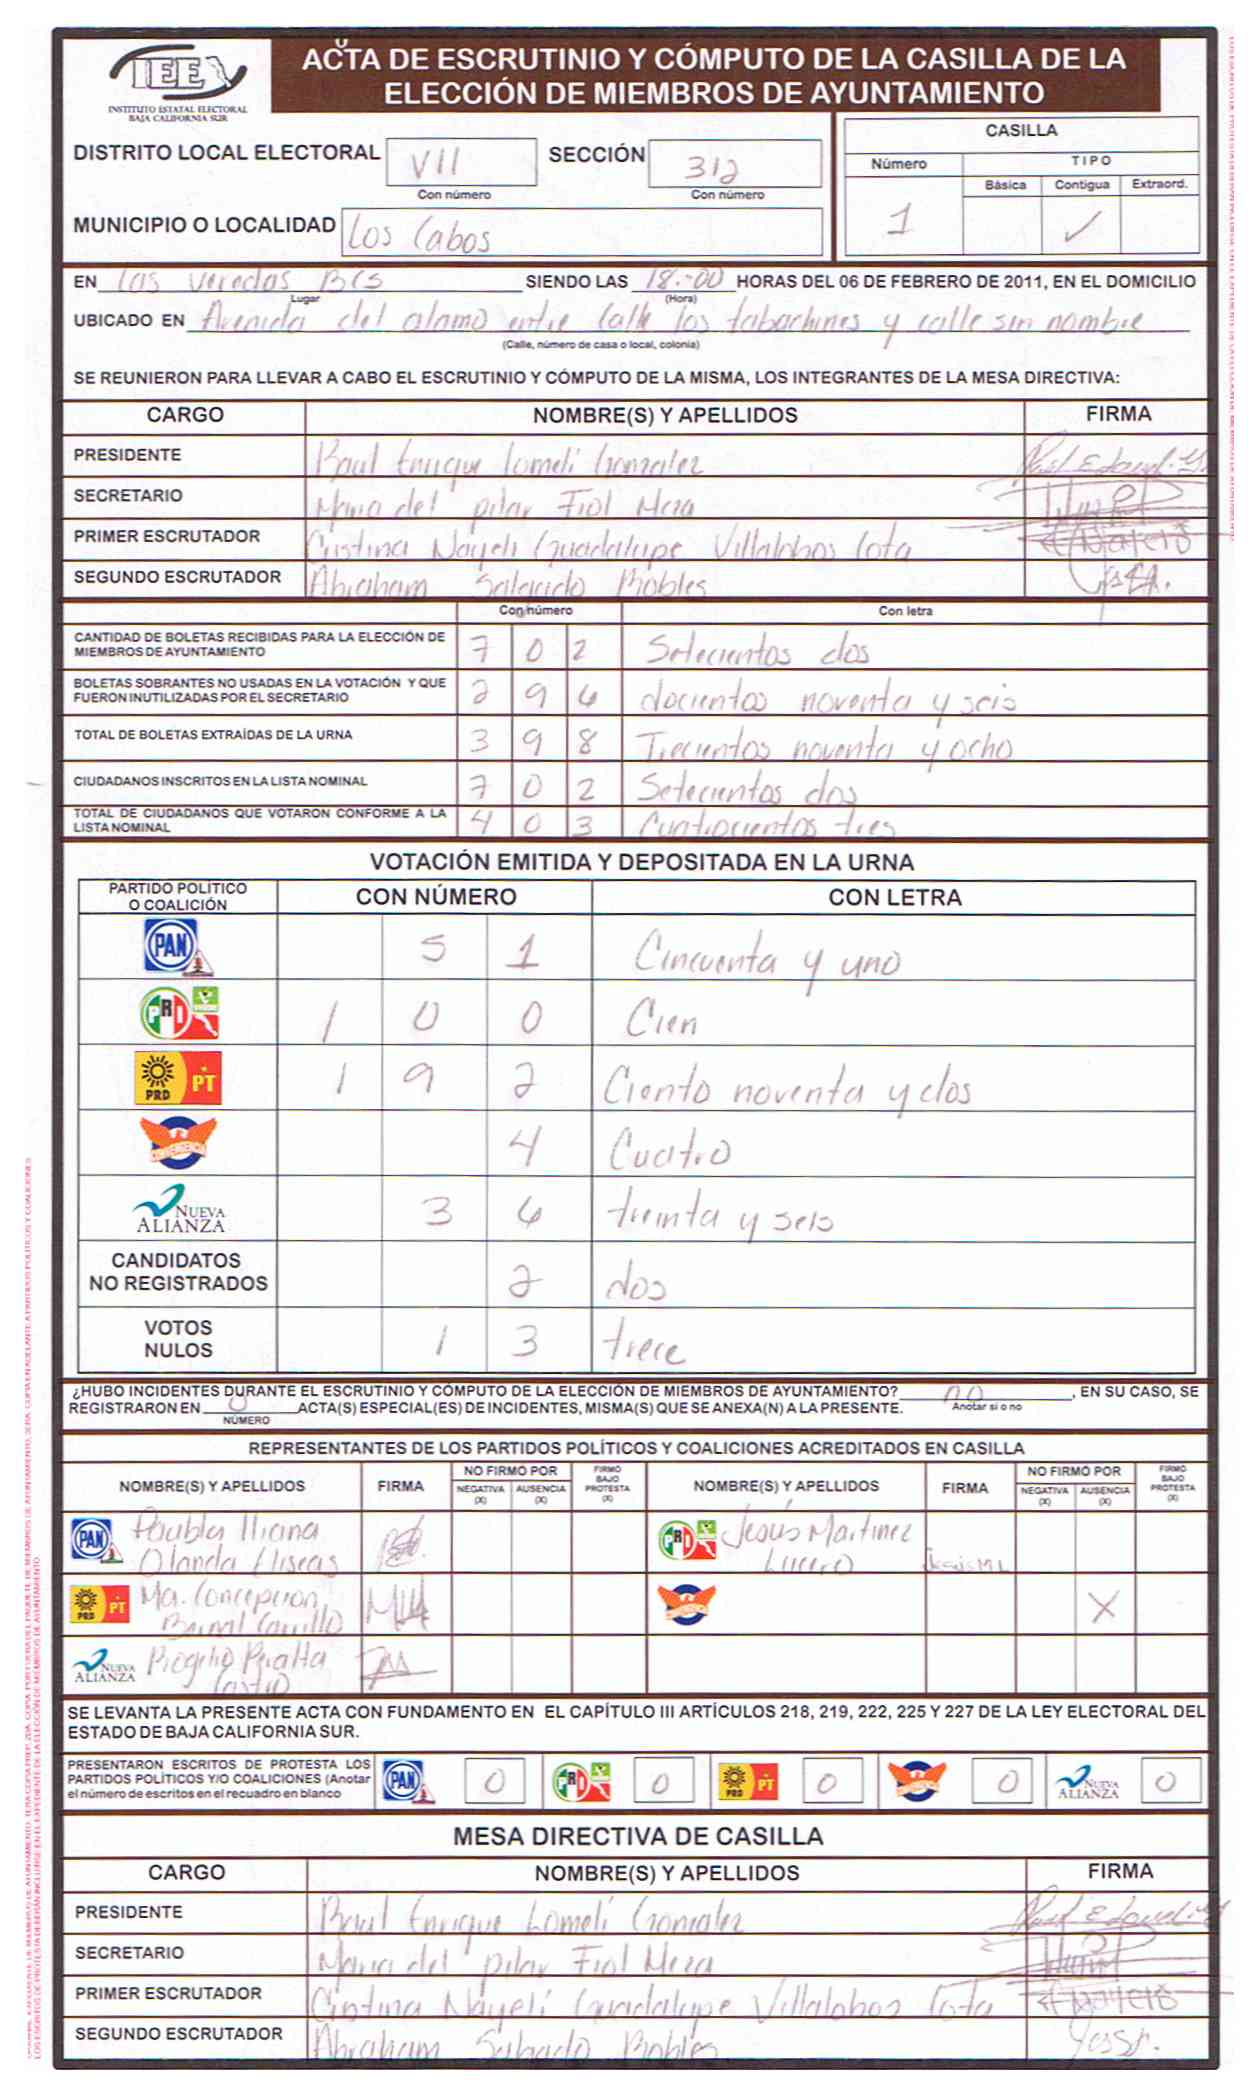 IEE
INSTITUTO ESTATAL ELECTORAL
BAJA CALIFORNIA SUR
ACTA DE ESCRUTINIO Y CÓMPUTO DE LA CASILLA DE LA
ELECCIÓN DE MIEMBROS DE AYUNTAMIENTO
DISTRITO LOCAL ELECTORAL VII SECCIÓN 312
Con número Con número
MUNICIPIO O LOCALIDAD Los Cabos
CASILLA
Número TIPO
Básica Contigua Extraord.
1 ✓
EN Las veredas BCS SIENDO LAS 18:00 HORAS DEL 06 DE FEBRERO DE 2011, EN EL DOMICILIO
Lugar (Hora)
UBICADO EN Avenida del alamo entre Calle los tabachines y calle sin nombre
(Calle, número de casa o local, colonia)
SE REUNIERON PARA LLEVAR A CABO EL ESCRUTINIO Y CÓMPUTO DE LA MISMA, LOS INTEGRANTES DE LA MESA DIRECTIVA:
CARGO NOMBRE(S) Y APELLIDOS FIRMA
PRESIDENTE Raul Enrique Lomelí Gonzalez
SECRETARIO Maria del pilar Fiol Meza
PRIMER ESCRUTADOR Cristina Nayeli Guadalupe Villalobos Cota
SEGUNDO ESCRUTADOR Abraham Salgado Robles
Con número Con letra
CANTIDAD DE BOLETAS RECIBIDAS PARA LA ELECCIÓN DE
MIEMBROS DE AYUNTAMIENTO 7 0 2 Setecientos dos
BOLETAS SOBRANTES NO USADAS EN LA VOTACIÓN Y QUE
FUERON INUTILIZADAS POR EL SECRETARIO 2 9 6 docientos noventa y seis
TOTAL DE BOLETAS EXTRAÍDAS DE LA URNA 3 9 8 Trecientos noventa y ocho
CIUDADANOS INSCRITOS EN LA LISTA NOMINAL 7 0 2 Setecientos dos
TOTAL DE CIUDADANOS QUE VOTARON CONFORME A LA
LISTA NOMINAL 4 0 3 Cuatrocientos tres
VOTACIÓN EMITIDA Y DEPOSITADA EN LA URNA
PARTIDO POLÍTICO
O COALICIÓN CON NÚMERO CON LETRA
PAN 5 1 Cincuenta y uno
PRI 1 0 0 Cien
PRD PT 1 9 2 Ciento noventa y dos
CONVERGENCIA 4 Cuatro
NUEVA
ALIANZA 3 6 treinta y seis
CANDIDATOS
NO REGISTRADOS 2 dos
VOTOS
NULOS 1 3 trece
¿HUBO INCIDENTES DURANTE EL ESCRUTINIO Y CÓMPUTO DE LA ELECCIÓN DE MIEMBROS DE AYUNTAMIENTO? no, EN SU CASO, SE
REGISTRARON EN 0 ACTA(S) ESPECIAL(ES) DE INCIDENTES, MISMA(S) QUE SE ANEXA(N) A LA PRESENTE. Anotar si o no
NÚMERO
REPRESENTANTES DE LOS PARTIDOS POLÍTICOS Y COALICIONES ACREDITADOS EN CASILLA
NOMBRE(S) Y APELLIDOS FIRMA NO FIRMÓ POR NEGATIVA (X) AUSENCIA (X) FIRMÓ BAJO PROTESTA (X) NOMBRE(S) Y APELLIDOS FIRMA NO FIRMÓ POR NEGATIVA (X) AUSENCIA (X) FIRMÓ BAJO PROTESTA (X)
PAN Iliana PRI Jesús Martinez
Lucero Jesús M L
PRD PT Ma. Concepcion X
NUEVA
ALIANZA Rogelio Peralta
Castro
SE LEVANTA LA PRESENTE ACTA CON FUNDAMENTO EN EL CAPÍTULO III ARTÍCULOS 218, 219, 222, 225 Y 227 DE LA LEY ELECTORAL DEL
ESTADO DE BAJA CALIFORNIA SUR.
PRESENTARON ESCRITOS DE PROTESTA LOS
PARTIDOS POLÍTICOS Y/O COALICIONES (Anotar
el número de escritos en el recuadro en blanco
PAN 0 PRI 0 PRD PT 0 0 NUEVA ALIANZA 0
MESA DIRECTIVA DE CASILLA
CARGO NOMBRE(S) Y APELLIDOS FIRMA
PRESIDENTE Raul Enrique Lomelí Gonzalez
SECRETARIO Maria del pilar Fiol Meza
PRIMER ESCRUTADOR Cristina Nayelí Guadalupe Villalobos Cota
SEGUNDO ESCRUTADOR Abraham Salgado Robles